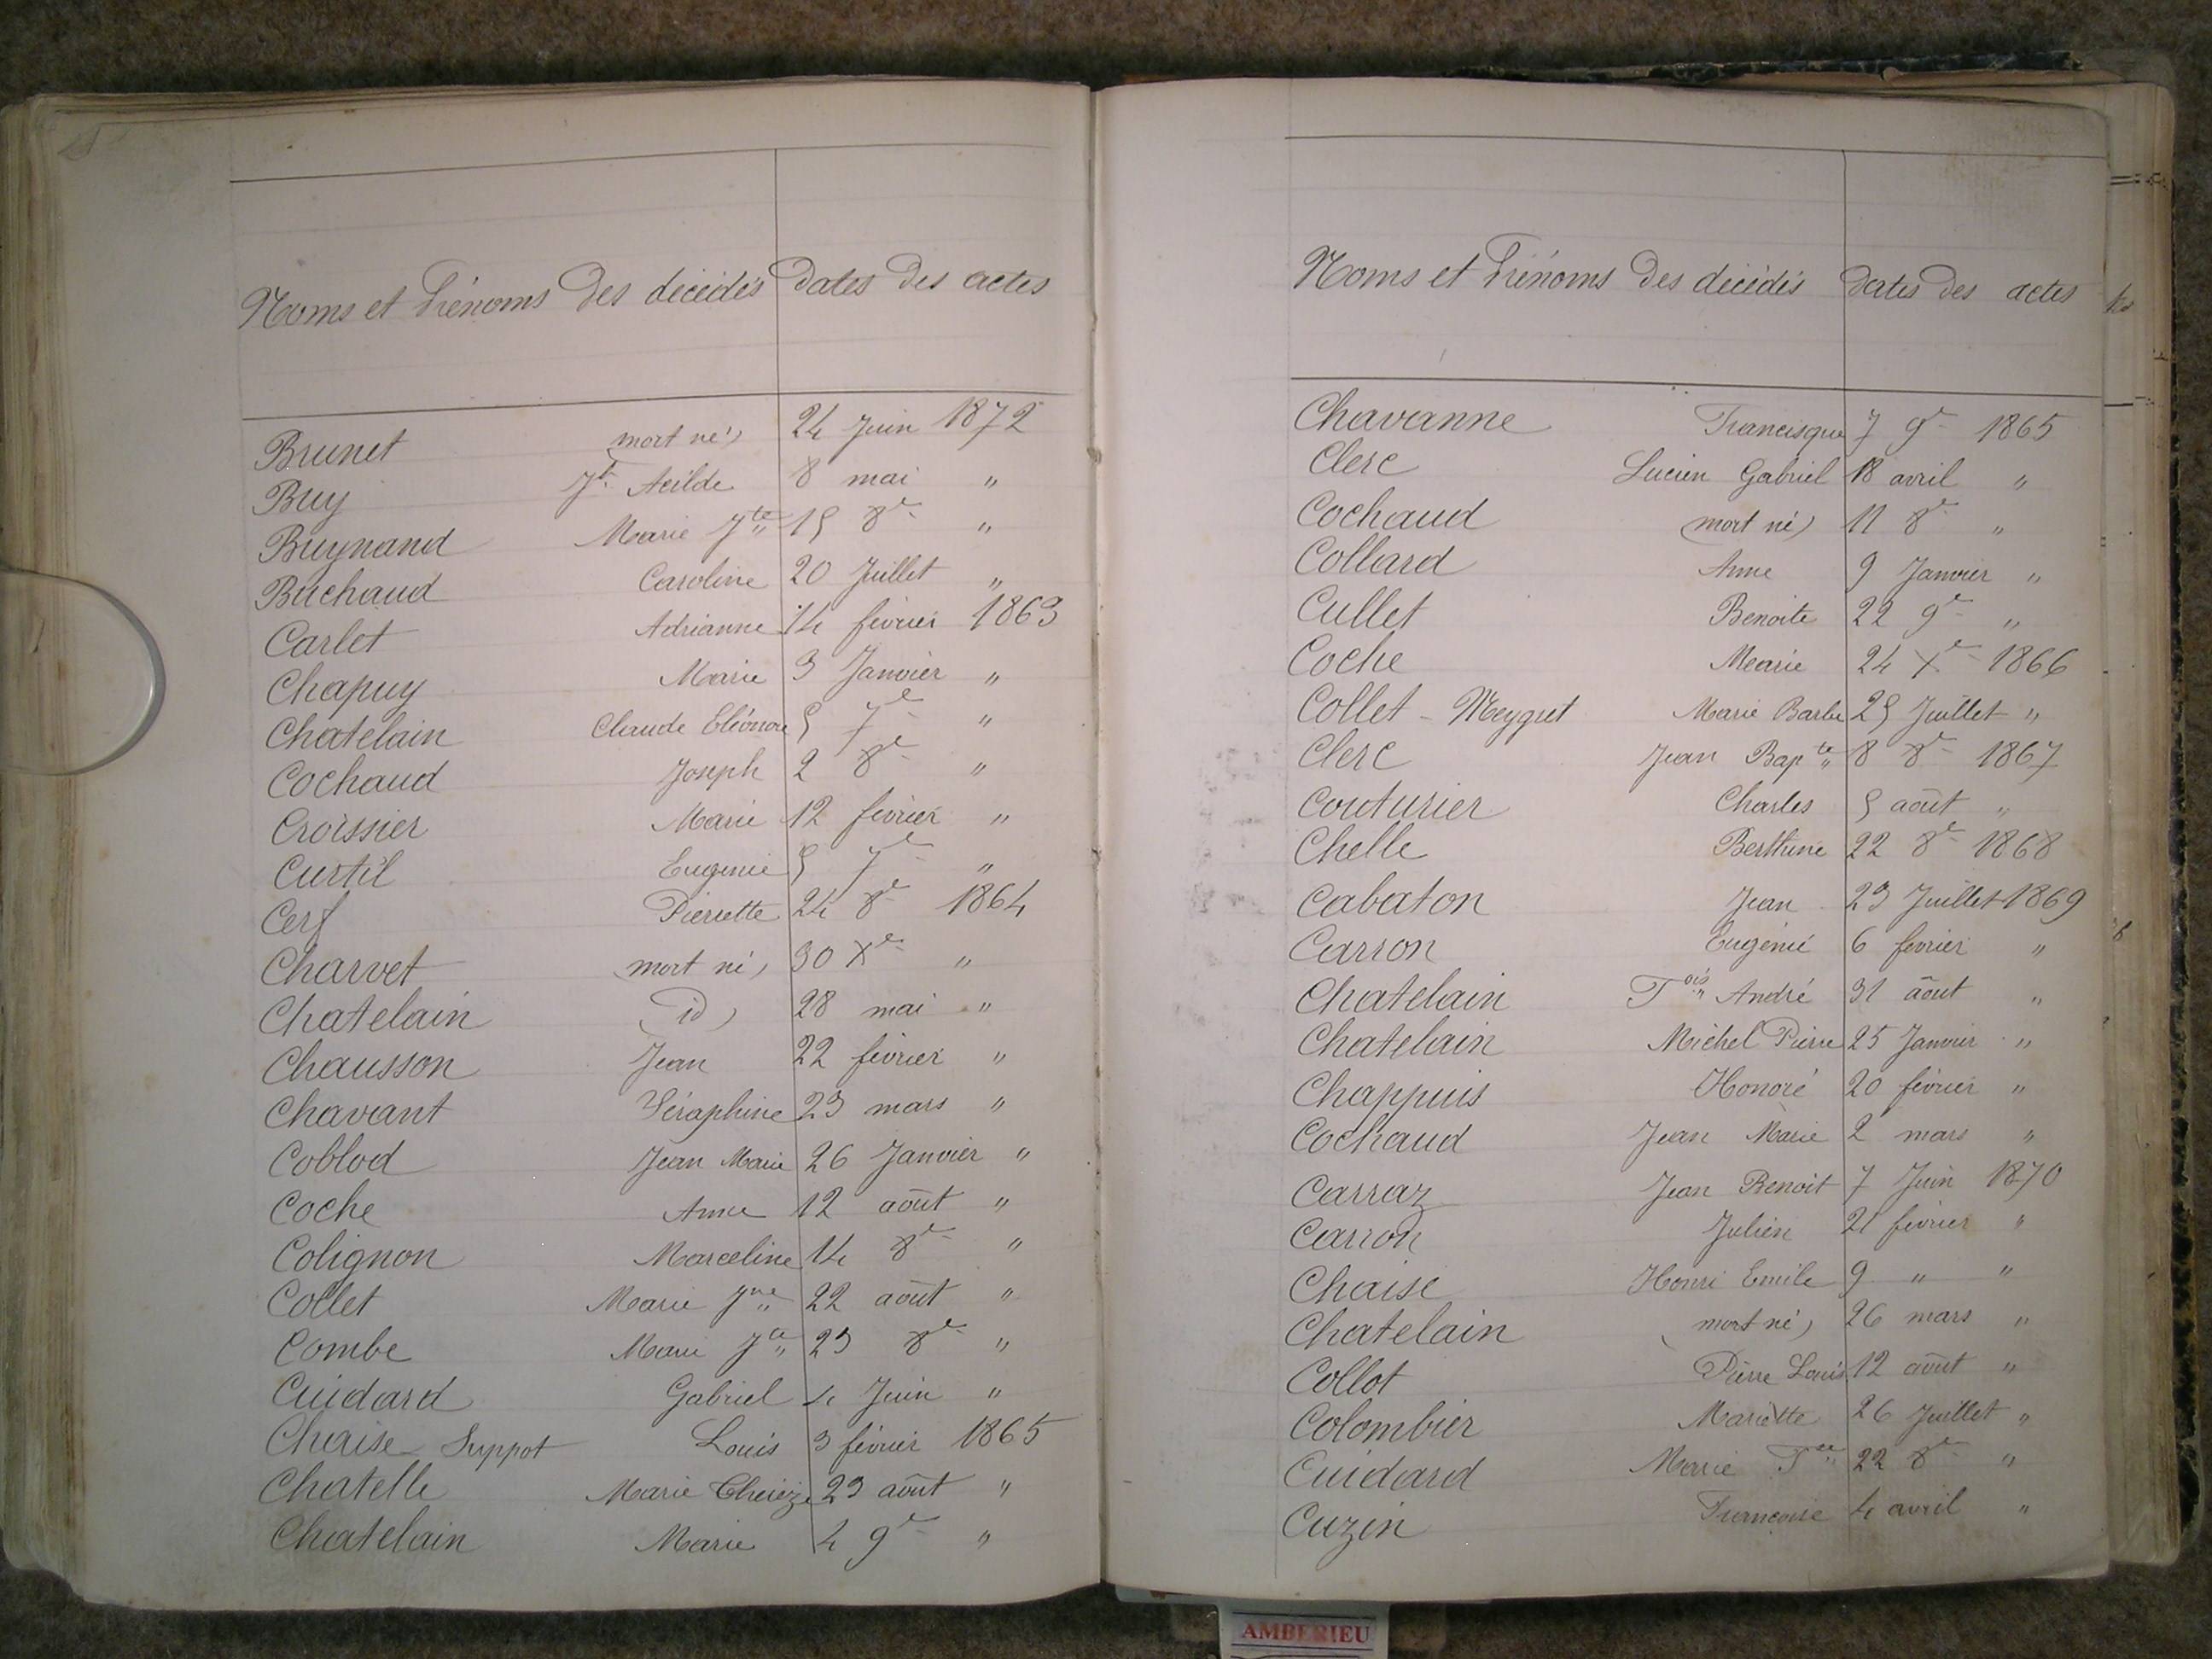 Noms et Prénoms des décédés dates des actes
Brunet (mort né) 24 Juin 1872
Buy Jh Acilde 8 mai "
Buynand Marie Jte 15 8e "
Buchaud Caroline 20 Juillet "
Carlet Adrianne 14 février 1863
Chapuy Marie 3 Janvier "
Chatelain Claude Eléonore 5 7e "
Cochaud Joseph 2 8e "
Croissier Marie 12 février "
Curtil Eugenie 5 7e "
Cerf Pierrette 24 8e 1864
Charvet (mort né) 30 Xe "
Chatelain (id) 28 mai "
Chausson Jean 22 février "
Chavant Séraphine 23 mars "
Coblod Jean Marie 26 Janvier "
Coche Anne 12 août "
Colignon Marceline 14 8e "
Collet Marie Jne 22 août "
Combe Marie 23 8e "
Cuidard Gabriel 4 Juin "
Chaise - Suppot Louis 3 février 1865
Chatelle Marie Thérèze 23 août "
Chatelain Marie 4 9e "
Noms et Prénoms des décédés dates des actes
Chavanne Francisque 7 9e 1865
Clerc Lucien Gabriel 18 avril "
Cochaud (mort né) 11 8e "
Collard Anne 9 Janvier "
Cullet Benoite 22 9e "
Coche Mearie 24 Xe 1866
Collet - Meygret Marie Barbe 25 Juillet "
Clerc Jean Bapte 8 8e 1867
Couturier Charles 5 août "
Chelle Berthine 22 8e 1868
Cabaton Jean 23 Juillet 1869
Carron Eugénie 6 février "
Chatelain Fois André 31 août "
Chatelain Michel Pierre 25 Janvier "
Chappuis Honoré 20 février "
Cochaud Jean Marie 2 mars "
Carraz Jean Benoit 7 Juin 1870
Carron Julien 21 février "
Chaise Henri Emile 9 " "
Chatelain (mort né) 26 mars "
Collot Pierre Louis 12 août "
Colombier Mariette 26 Juillet "
Cuidard Marie Fce 22 8e "
Cuzin Françoise 4 avril "
AMBERIEU